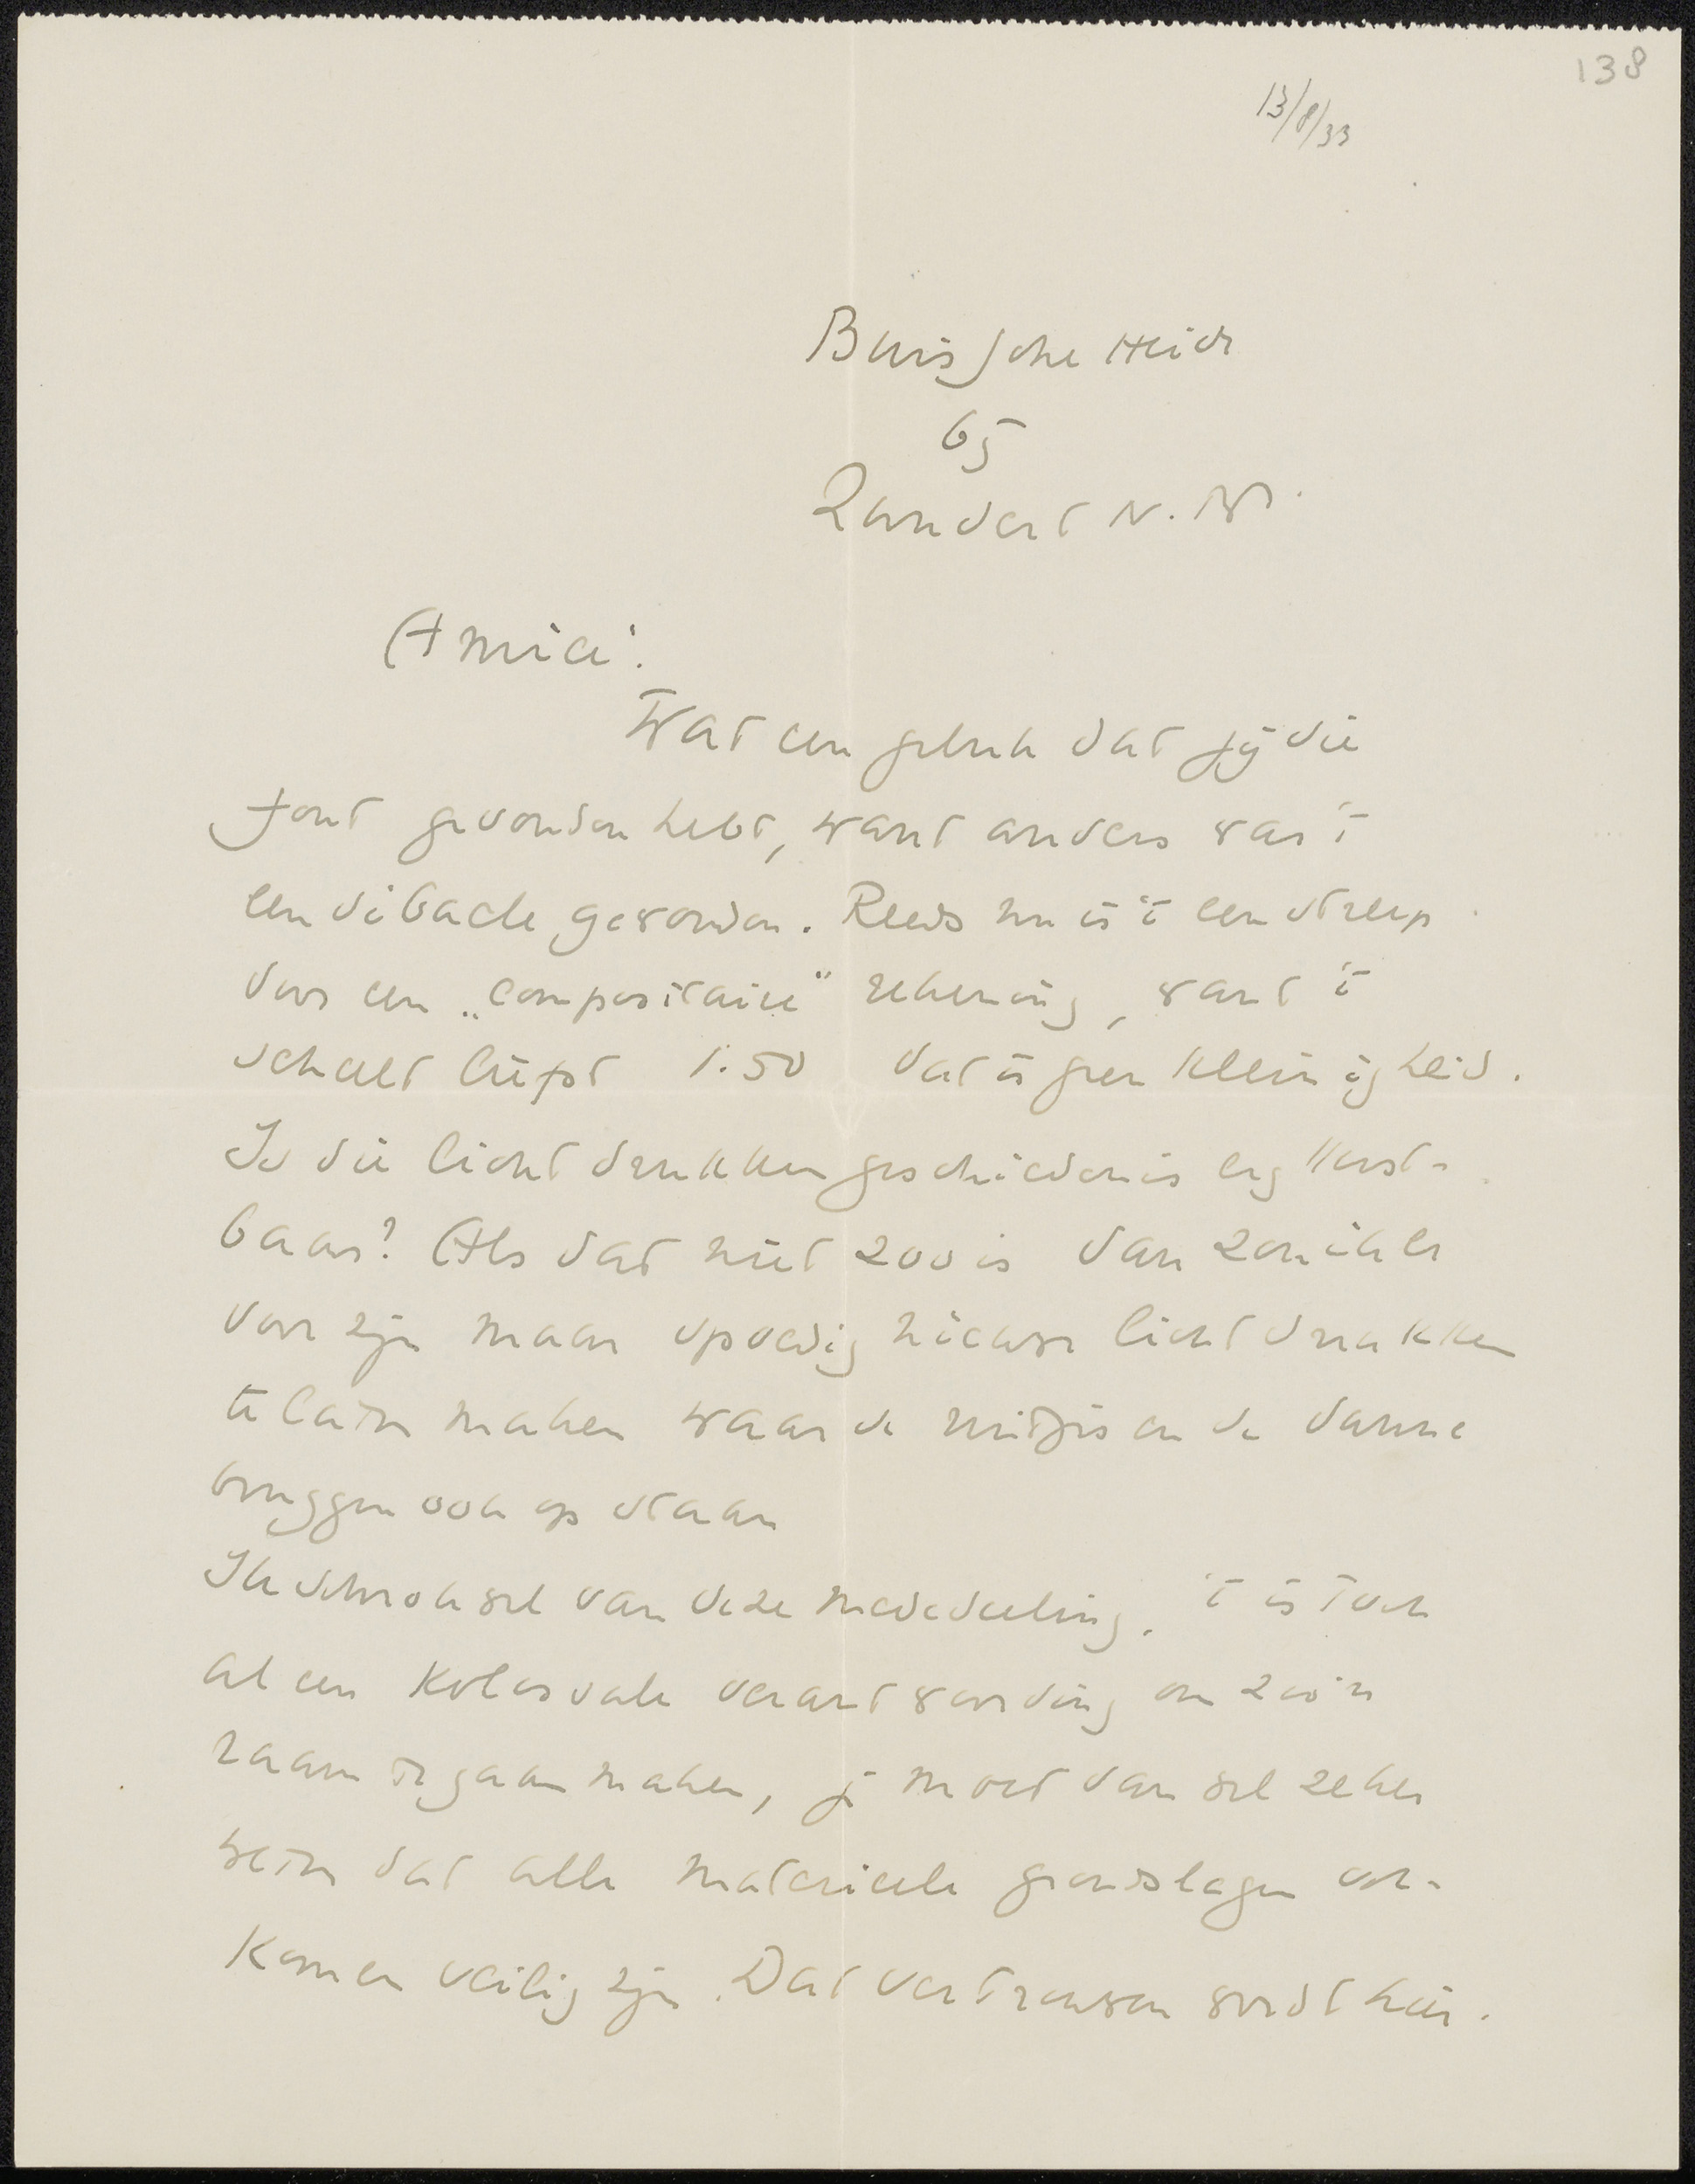 138
13/8/33
Buissche Heide
65
Zundert N. B.
Amice:
Wat een geluk dat jij die
fout gevonden hebt, want anders was 't
een débacle geworden. Reeds nu is 't een streep
door een „compositaire" rekening, want 't
scheelt liefst 1.50 dat is geen kleinigheid.
Is die lichtdrukken geschiedenis erg kost-
baar? Als dat niet zoo is dan zou ik er
voor zijn maar spoedig nieuwe lichtdrukken
te laten maken waar de en de dunne
bruggen ook op staan
Ik schrok wel van deze mededeeling. 't is toch
al een kolossale verantwoording om zoo'n
raam te gaan maken, je moet dan wel zeker
weten dat alle materieele grondslagen vol-
komen veilig zijn. Dat vertrouwen wordt hier.